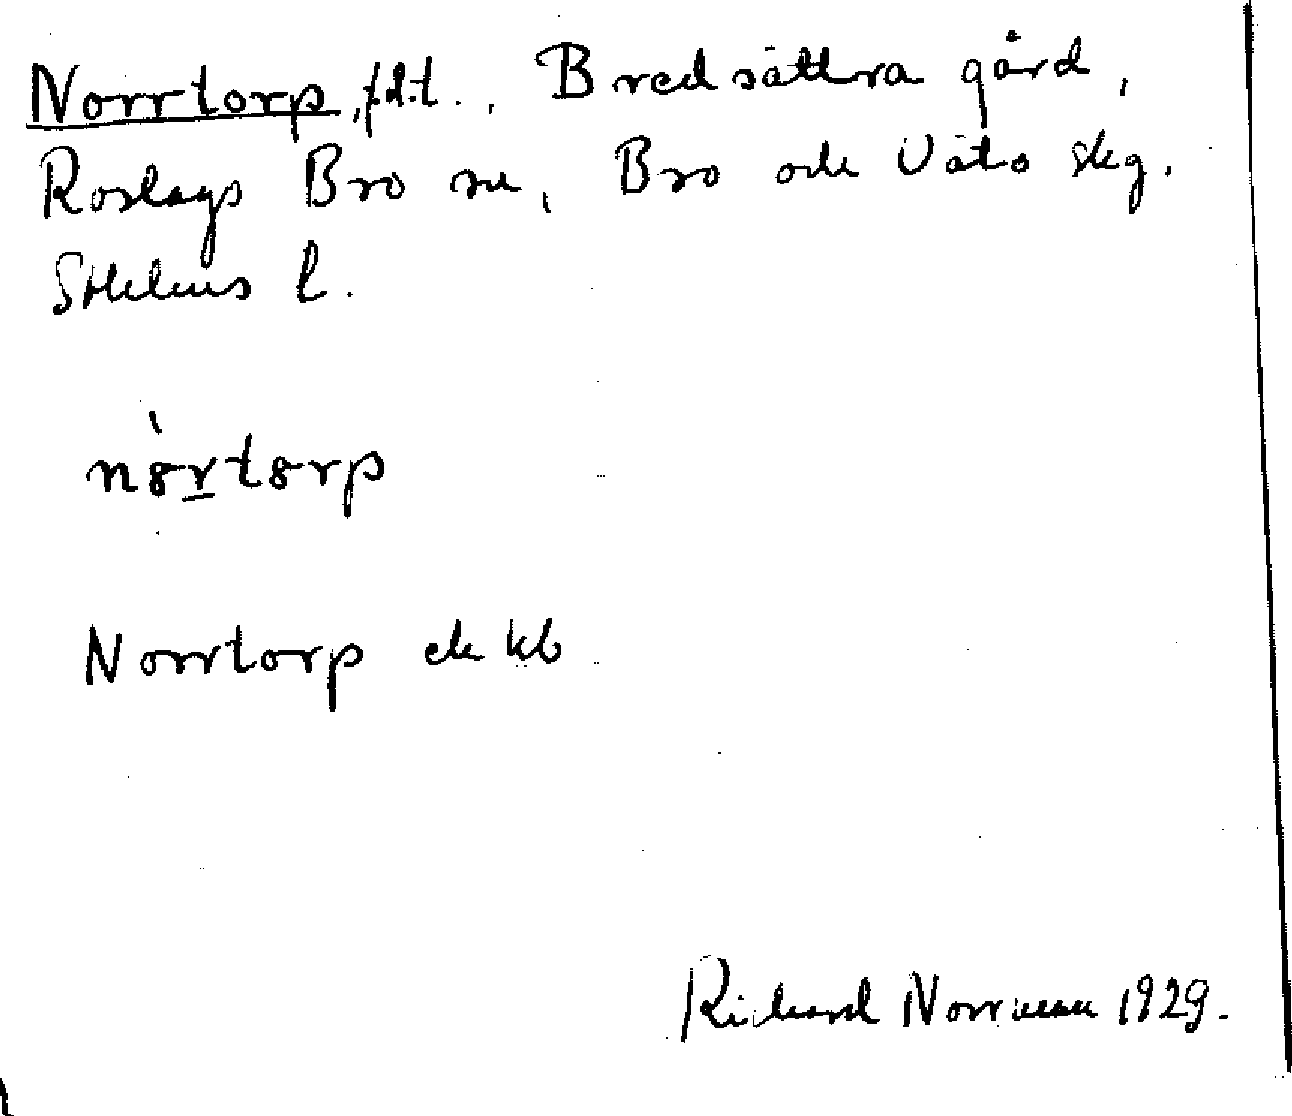 Norrtorp, f.d.t., Bredsättra gård,
Roslags Bro sn, Bro och Vätö skg.
Sthlms l.
nòrtorp
Norrtorp ek kb
Richard Norrman 1929.